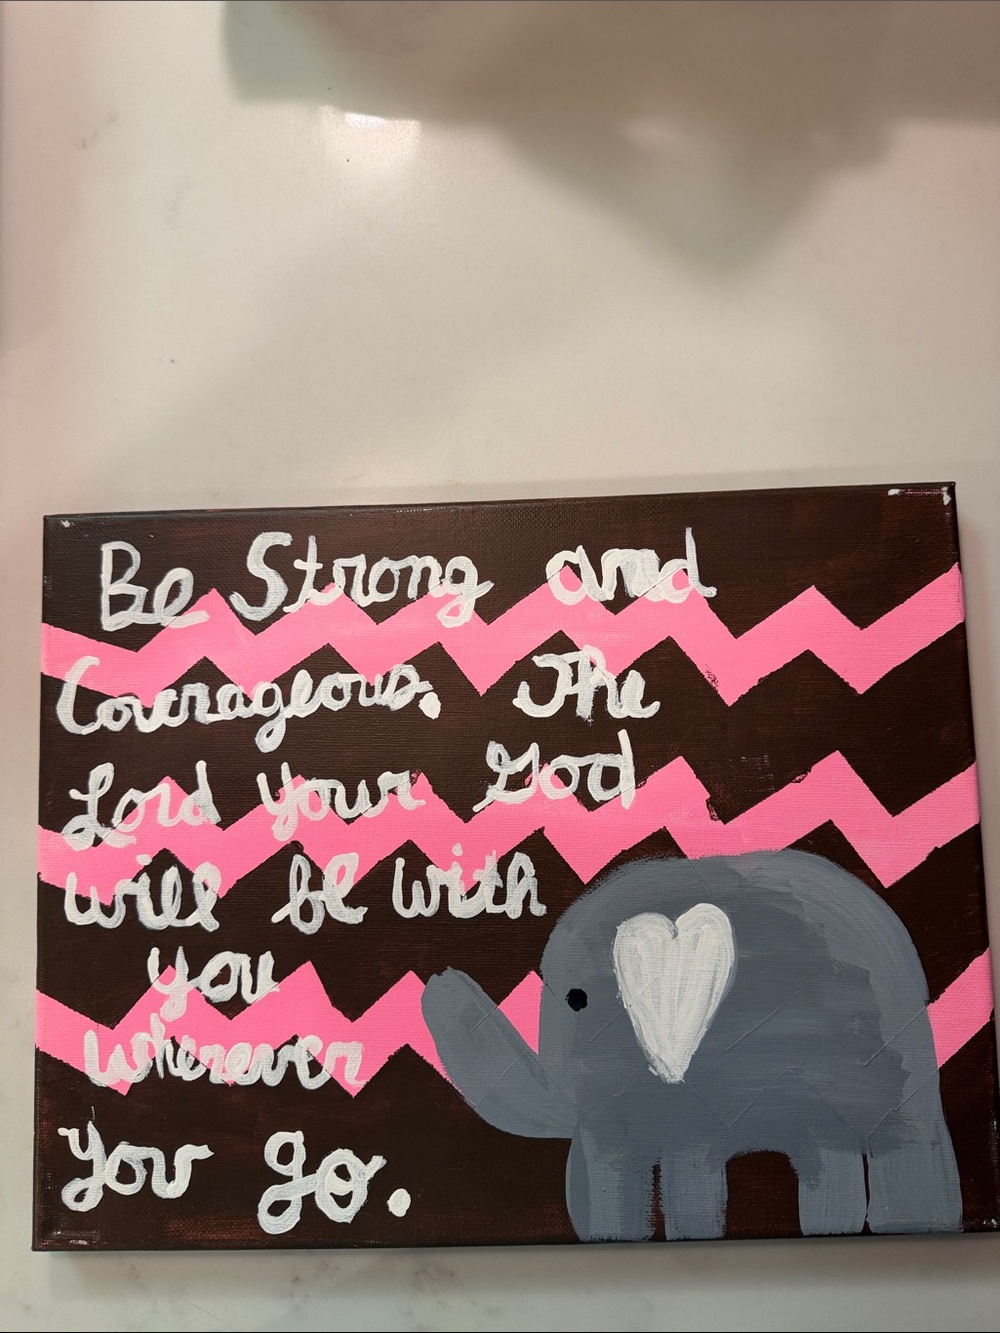 Be Strong and
Courageous. The
Lord your God
will be with
you
Wherever
you go.